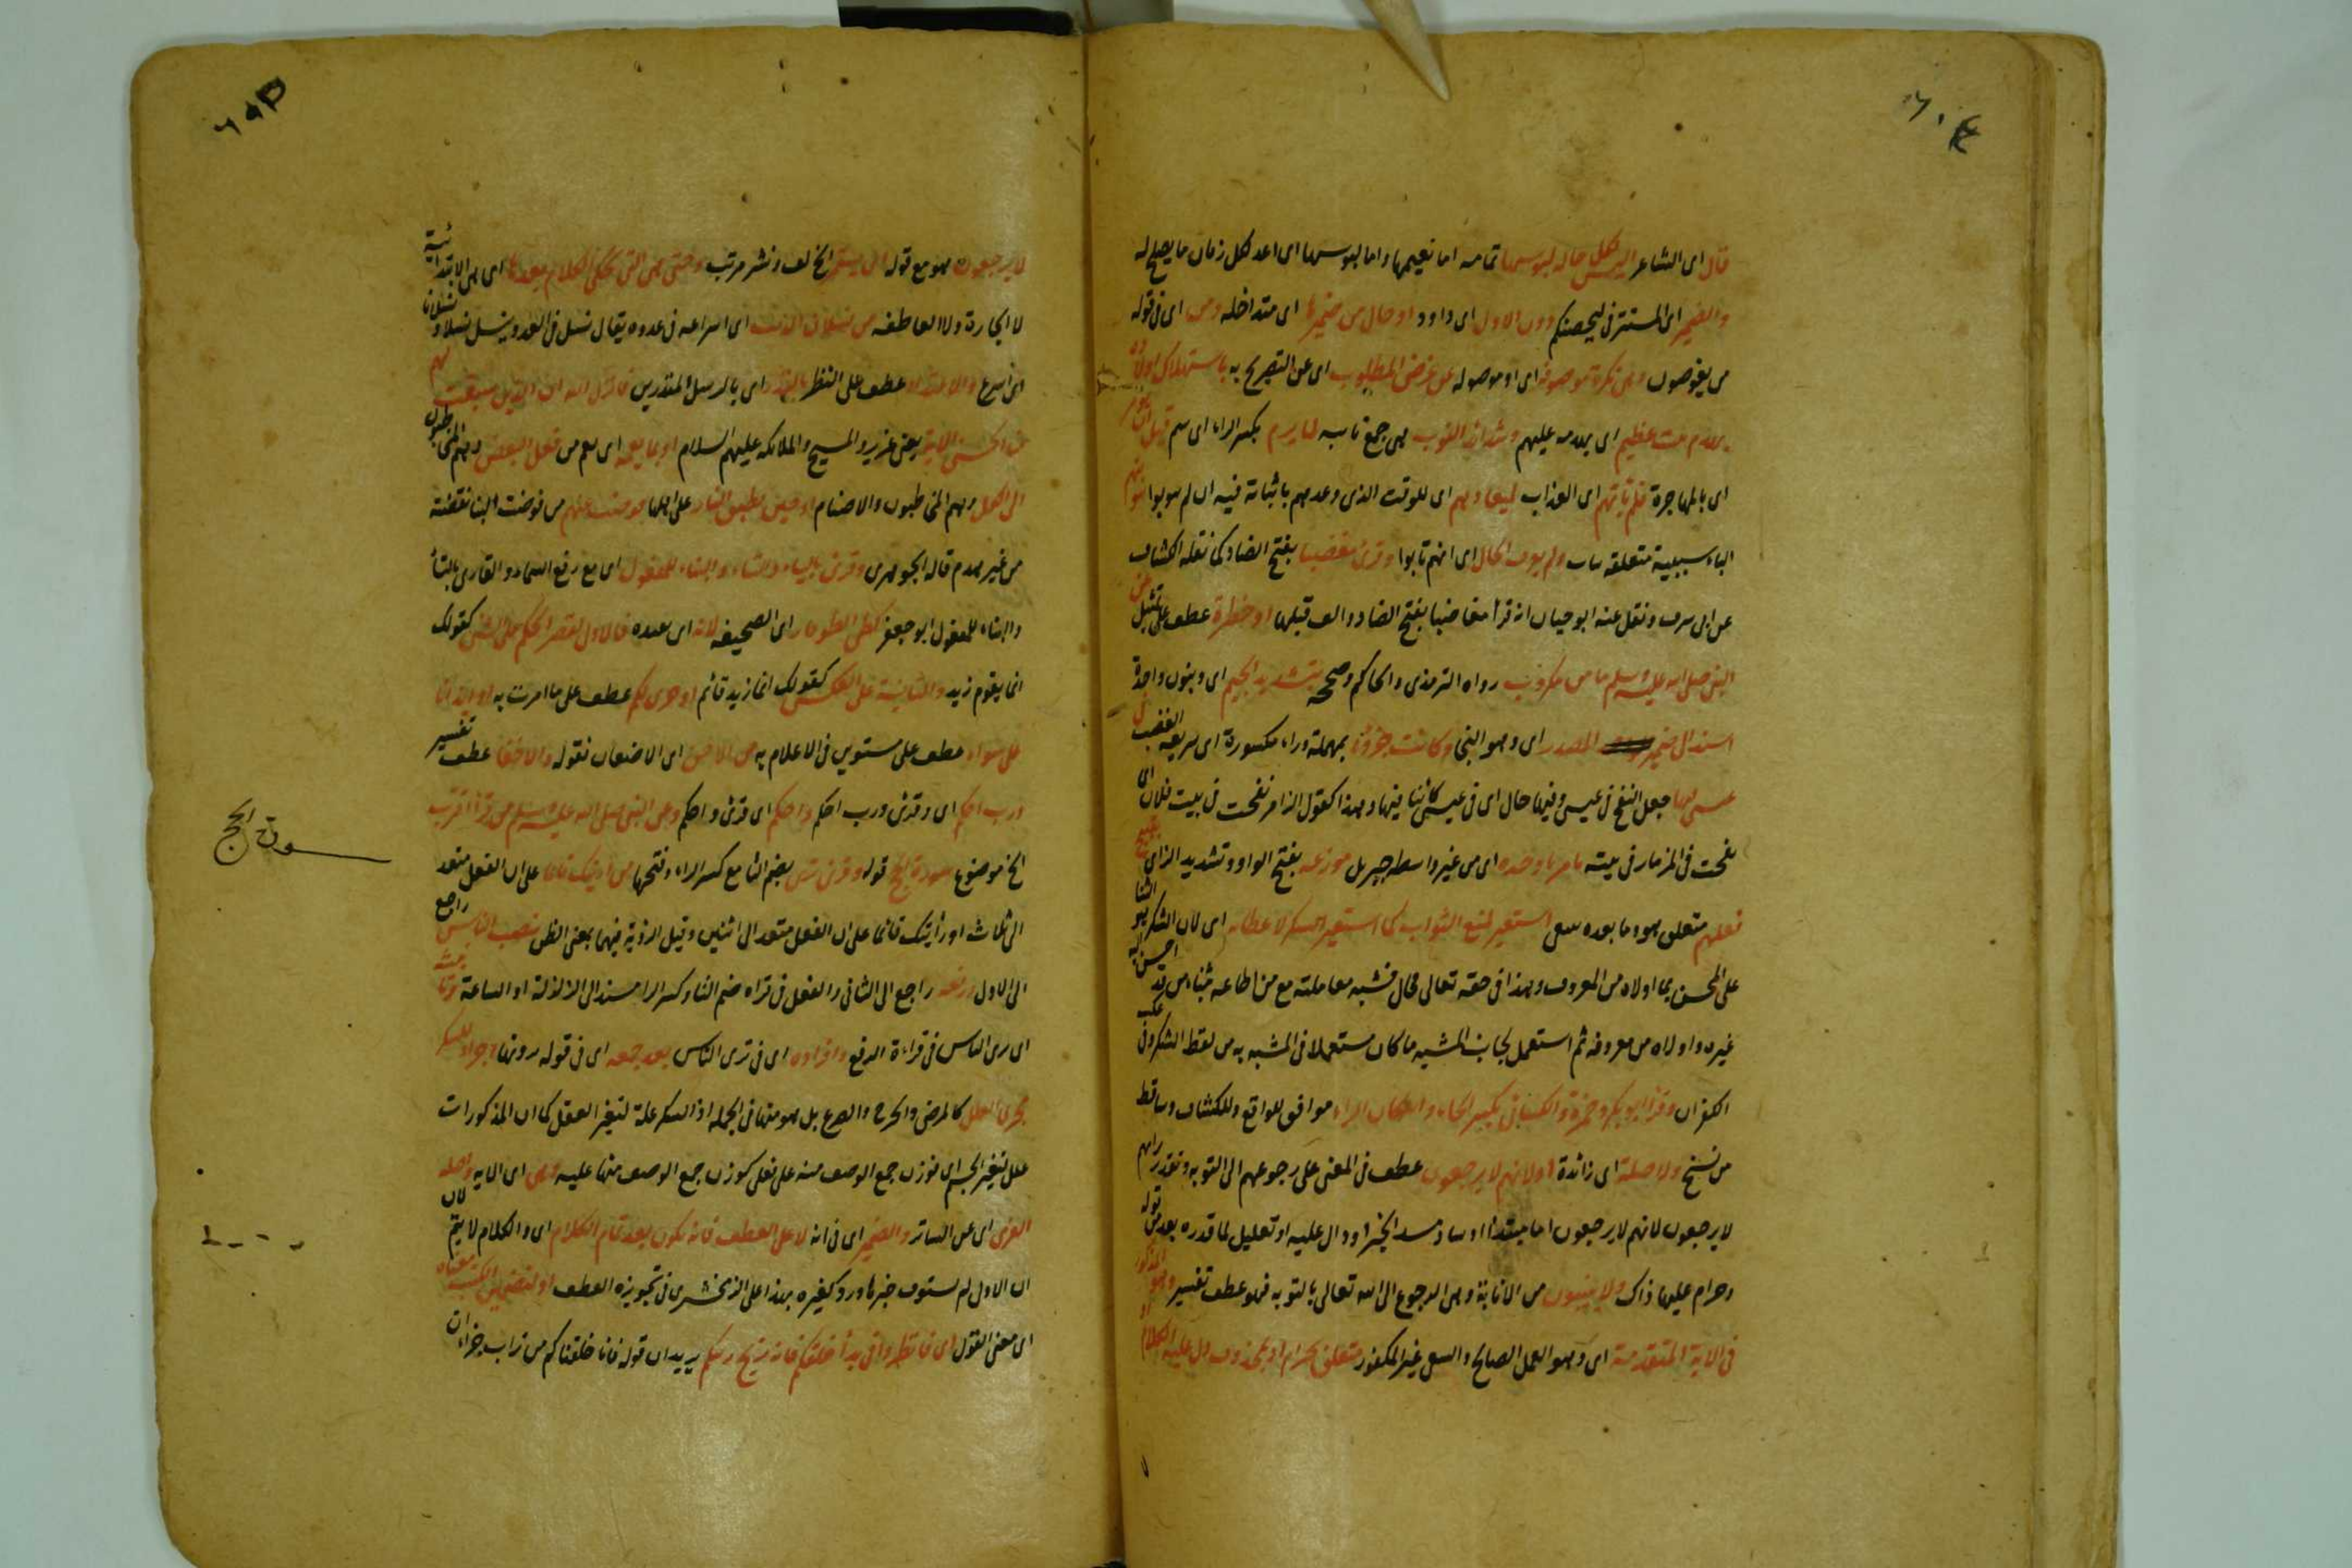 قال اى الشاعر البس لكل حالة لبوسها تمامه اما نعيمها واما بوسها اى اعد لكل زمان ما يصلح له
والضمير اى المستتر فى ليحصنكم دون الاول اى داود او حال من ضميرها اى متداخله ومن اى فى قوله
من يغوصون وهى نكرة موصوفة اى او موصوله عن غرض المطلوب اى عن التصريح به باستهلاك اولاده
اى يهدمه عليهم وشذاذ النوب هى جمع نايبه لما يرم بكسر الراء اى سم قبل
اى بالمهاجرة فلم ياتهم اى العذاب لميعادهم اى للوقت الذى وعدهم باتيانه فيه ان لم يتوبوا
الباء سببية متعلقة ولم يعرف الحال اى انهم تابوا وقرئ مغضبا بفتح الضاد كما نقله الكشاف
عن ابى شرف ونقل عنه ابو حيان انه قرأ مغاضبا بفتح الضاد والف قبلها او خطرة عطف على تمثيل
النبى صلى الله عليه وسلم ما من مكروب رواه الترمذى والحاكم وصححه بتشديد الجيم اى وبنون واحدة
اسند الى ضمير المصدر اى وهو النجا وكانت حردة بمهملة وراء مكسورة اى سريعه الغضب
عيسى فيها جعل النفخ فى عيسى وفيها حال اى فى عيسى كائنا فيها وهذا كقول الزامر نفخت فى بيت فلان اى
نفخت فى المزمار فى بيته بامرنا وحده اى من غير واسطة جبريل موزعه بفتح الواو وتشديد الزاى
فعلهم متعلق هو وما بعده بسعى استعير لمنع الثواب كما استعير الشكر لاعطائه اى لان الشكر هو الثنا
على المحسن بما اولاه من المعروف وهذا فى حقه تعالى محال فشبه معاملته مع من اطاعه بثناء من قد احسن اليه
غيره واولاه من معروفه ثم استعمل لجانب المشبه ما كان مستعملا فى المشبه به من لفظ الشكر وفى عكسه
الكفران وقرأ ابو بكر وحمزة والكسائى بكسر الحاء واسكان الراء موافق للواقع وللكشاف وساقط
من نسخ ولا صلة اى زائدة او لانهم لا يرجعون عطف فى المعنى على رجوعهم الى التوبه وتقديره حرام
لا يرجعون لانهم لا يرجعون اما مبتدأ او ساد مسد الخبر او دال عليه او تعليل لما قدره بعد من قوله
وحرام عليها ذاك ولا ينيبون من الانابة وهى الرجوع الى الله تعالى بالتوبه فهو عطف تفسير وهو المذكور
فى الاية المتقدمة اى وهو العمل الصالح والسعى غير المكفور متعلق بحرام او بمحذوف دل عليه الكلام
لا يرجعون هو مع قوله الى يستمر الخ لف ونشر مرتب وحتى هى التى يحكى الكلام بعدها اى هى الابتدائية
لا الجارة ولا العاطفه من نسلان الذئب اى اسراعه فى عدوه يقال نسل فى العدو ينسل نسلا ونسلانا
اى اسرع عطف على النظر بالنذر اى بالرسل المنذرين فانزل الله ان الذين سبقت لهم
منا الحسنى الاية يعنى عزير والمسيح والملائكه عليهم السلام او بما يعمه اى يعم من فعل البعض وهم المخاطبون
الى الكل وهم المخاطبون والاصنام او حين يطبق النار على اهلها من قوضت البنا نقضته
من غير هدم قاله الجوهرى وقرئ بالياء والتاء والبناء للمفعول اى مع رفع السماء والقارئ بالتاء
والبناء للمفعول ابو جعفر كطى الطومار اى الصحيفه لانه اى عنده فالاول لقصر الحكم على الشئ كقولك
انما يقوم زيد والثانية على العكس كقولك انما زيد قائم او حربى لكم عطف على ما امرت به او ايذانا
على سواء عطف على مستوين فى الاعلام به من الاحن اى الاضغان نقوله والاحقاد عطف تفسير
ورب احكم اى وقرئ ورب احكم واحكم اى قرئ واحكم وعن النبى صلى الله عليه وسلم من قرأ اقترب
الخ موضوع سورة الحج قوله وقرئ ترى بضم التا مع كسر الراء وفتحها من اريتك قائما على ان الفعل متعد
الى ثلاث او رأيتك قائما على ان الفعل متعد الى اثنين وقيل الرؤية فيهما بمعنى الظن بنصب الناس راجع
الى الاول ورفعه راجع الى الثانى والفعل فى قراه ضم التا وكسر الرا مسند الى الزلزلة او الساعة
اى ترى الناس فى قراءة الرفع وافراده اى فى ترى الناس بعد جمعه اى فى قوله ترونها اجراء للسكر
مجرى العلل كالمرض والجرح والصرع بل هو منها فى الجمله اذ السكر علة لتغير العقل كما ان المذكورات
علل لتغير الجسم اى فوزن جمع الوصف منه على فعلى كوزن جمع الوصف منها عليه وهى اى الايه واصله
العرى اى عن الساتر والضمير اى فى انه لا على العطف فانه يكون بعد تمام الكلام اى والكلام لا يتم لان
ان الاول لم يستوف خبرها ورد كغيره بهذا على الزمخشرى فى تجويزه العطف او لتضمين الكتب معناه
اى معنى القول اى فانظروا فى بدأ خلقكم فانه يزيح ريبكم يريد ان قوله فانا خلقناكم من تراب جزاء ان
سورة الحج